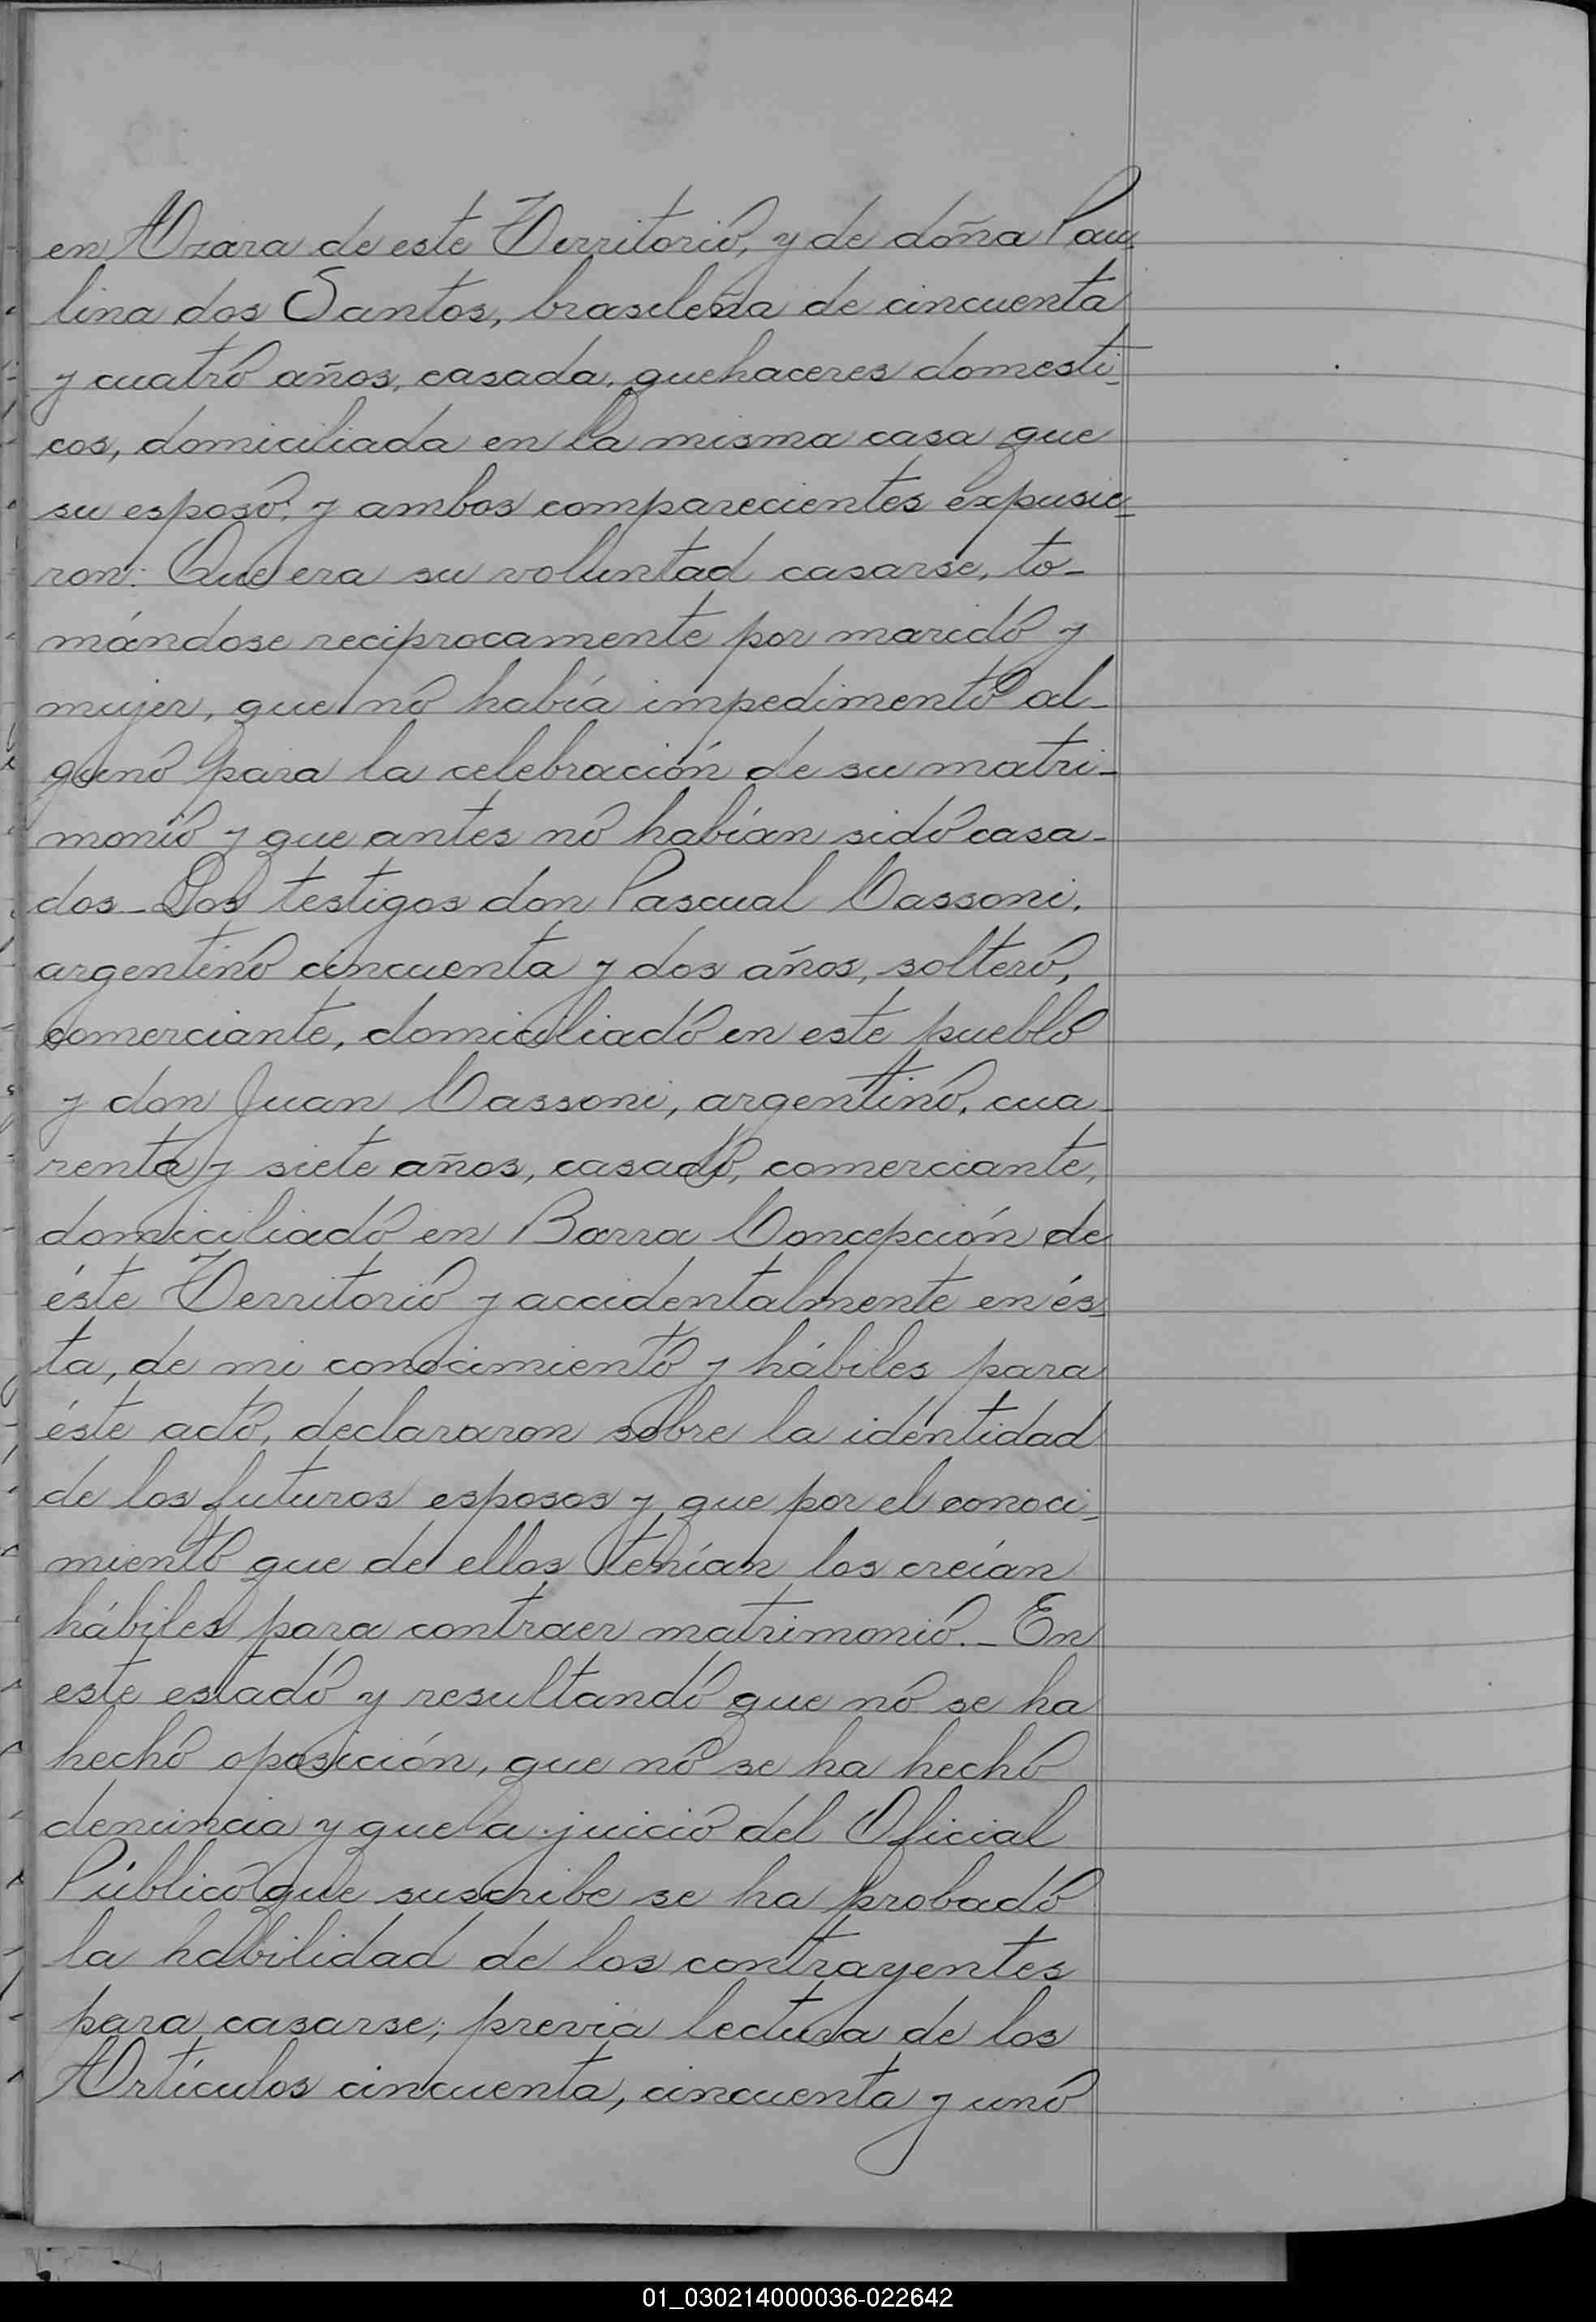 en Azara de este Territorio, y de doña Pau-
lina dos Santos, brasileña de cincuenta
y cuatro años, casada, quehaceres domesti-
cos, domiciliada en la misma casa que
su esposo; y ambos comparecientes expusie-
ron: Que era su voluntad casarse, to-
mándose reciprocamente por marido y
mujer, que no había impedimento al-
guno para la celebración de su matri-
monio y que antes no habían sido casa-
dos_Los testigos don Pascual Cassoni,
argentino cincuenta y dos años, soltero,
comerciante, domiciliado en este pueblo
y don Juan Cassoni, argentino, cua-
renta y siete años, casado, comerciante,
domiciliado en Barra Concepción de
éste Territorio y accidentalmente en és-
ta, de mi conocimiento y hábiles para
éste acto, declararon sobre la idéntidad
de los futuros esposos y que por el conoci-
miento que de ellos tenían los creían
hábiles para contraer matrimonio._En
este estado y resultando que no se ha
hecho oposición, que no se ha hecho
denuncia y que a juicio del Oficial
Público que suscribe se ha probado
la habilidad de los contrayentes
para casarse; previa lectura de los
Artículos cincuenta, cincuenta y uno
01_030214000036-022642